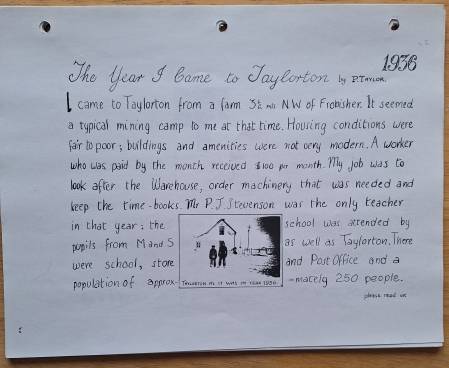 1936
The Year I Came to Taylorton by P. TAYLOR.
I came to Taylorton from a farm 3½ mls N.W of Frobisher. It seemed
a typical mining camp to me at that time. Housing conditions were
fair to poor; buildings and amenities were not very modern. A worker
who was paid by the month received $100 per month. My job was to
look after the Warehouse, order machinery that was needed and
keep the time-books. Mr P.J. Stevenson was the only teacher
in that year: the school was attended by
pupils from M and S as well as Taylorton. There
were school, store and Post Office and a
population of approx- -mately 250 people.
TAYLORTON AS IT WAS IN YEAR 1936.
please read on